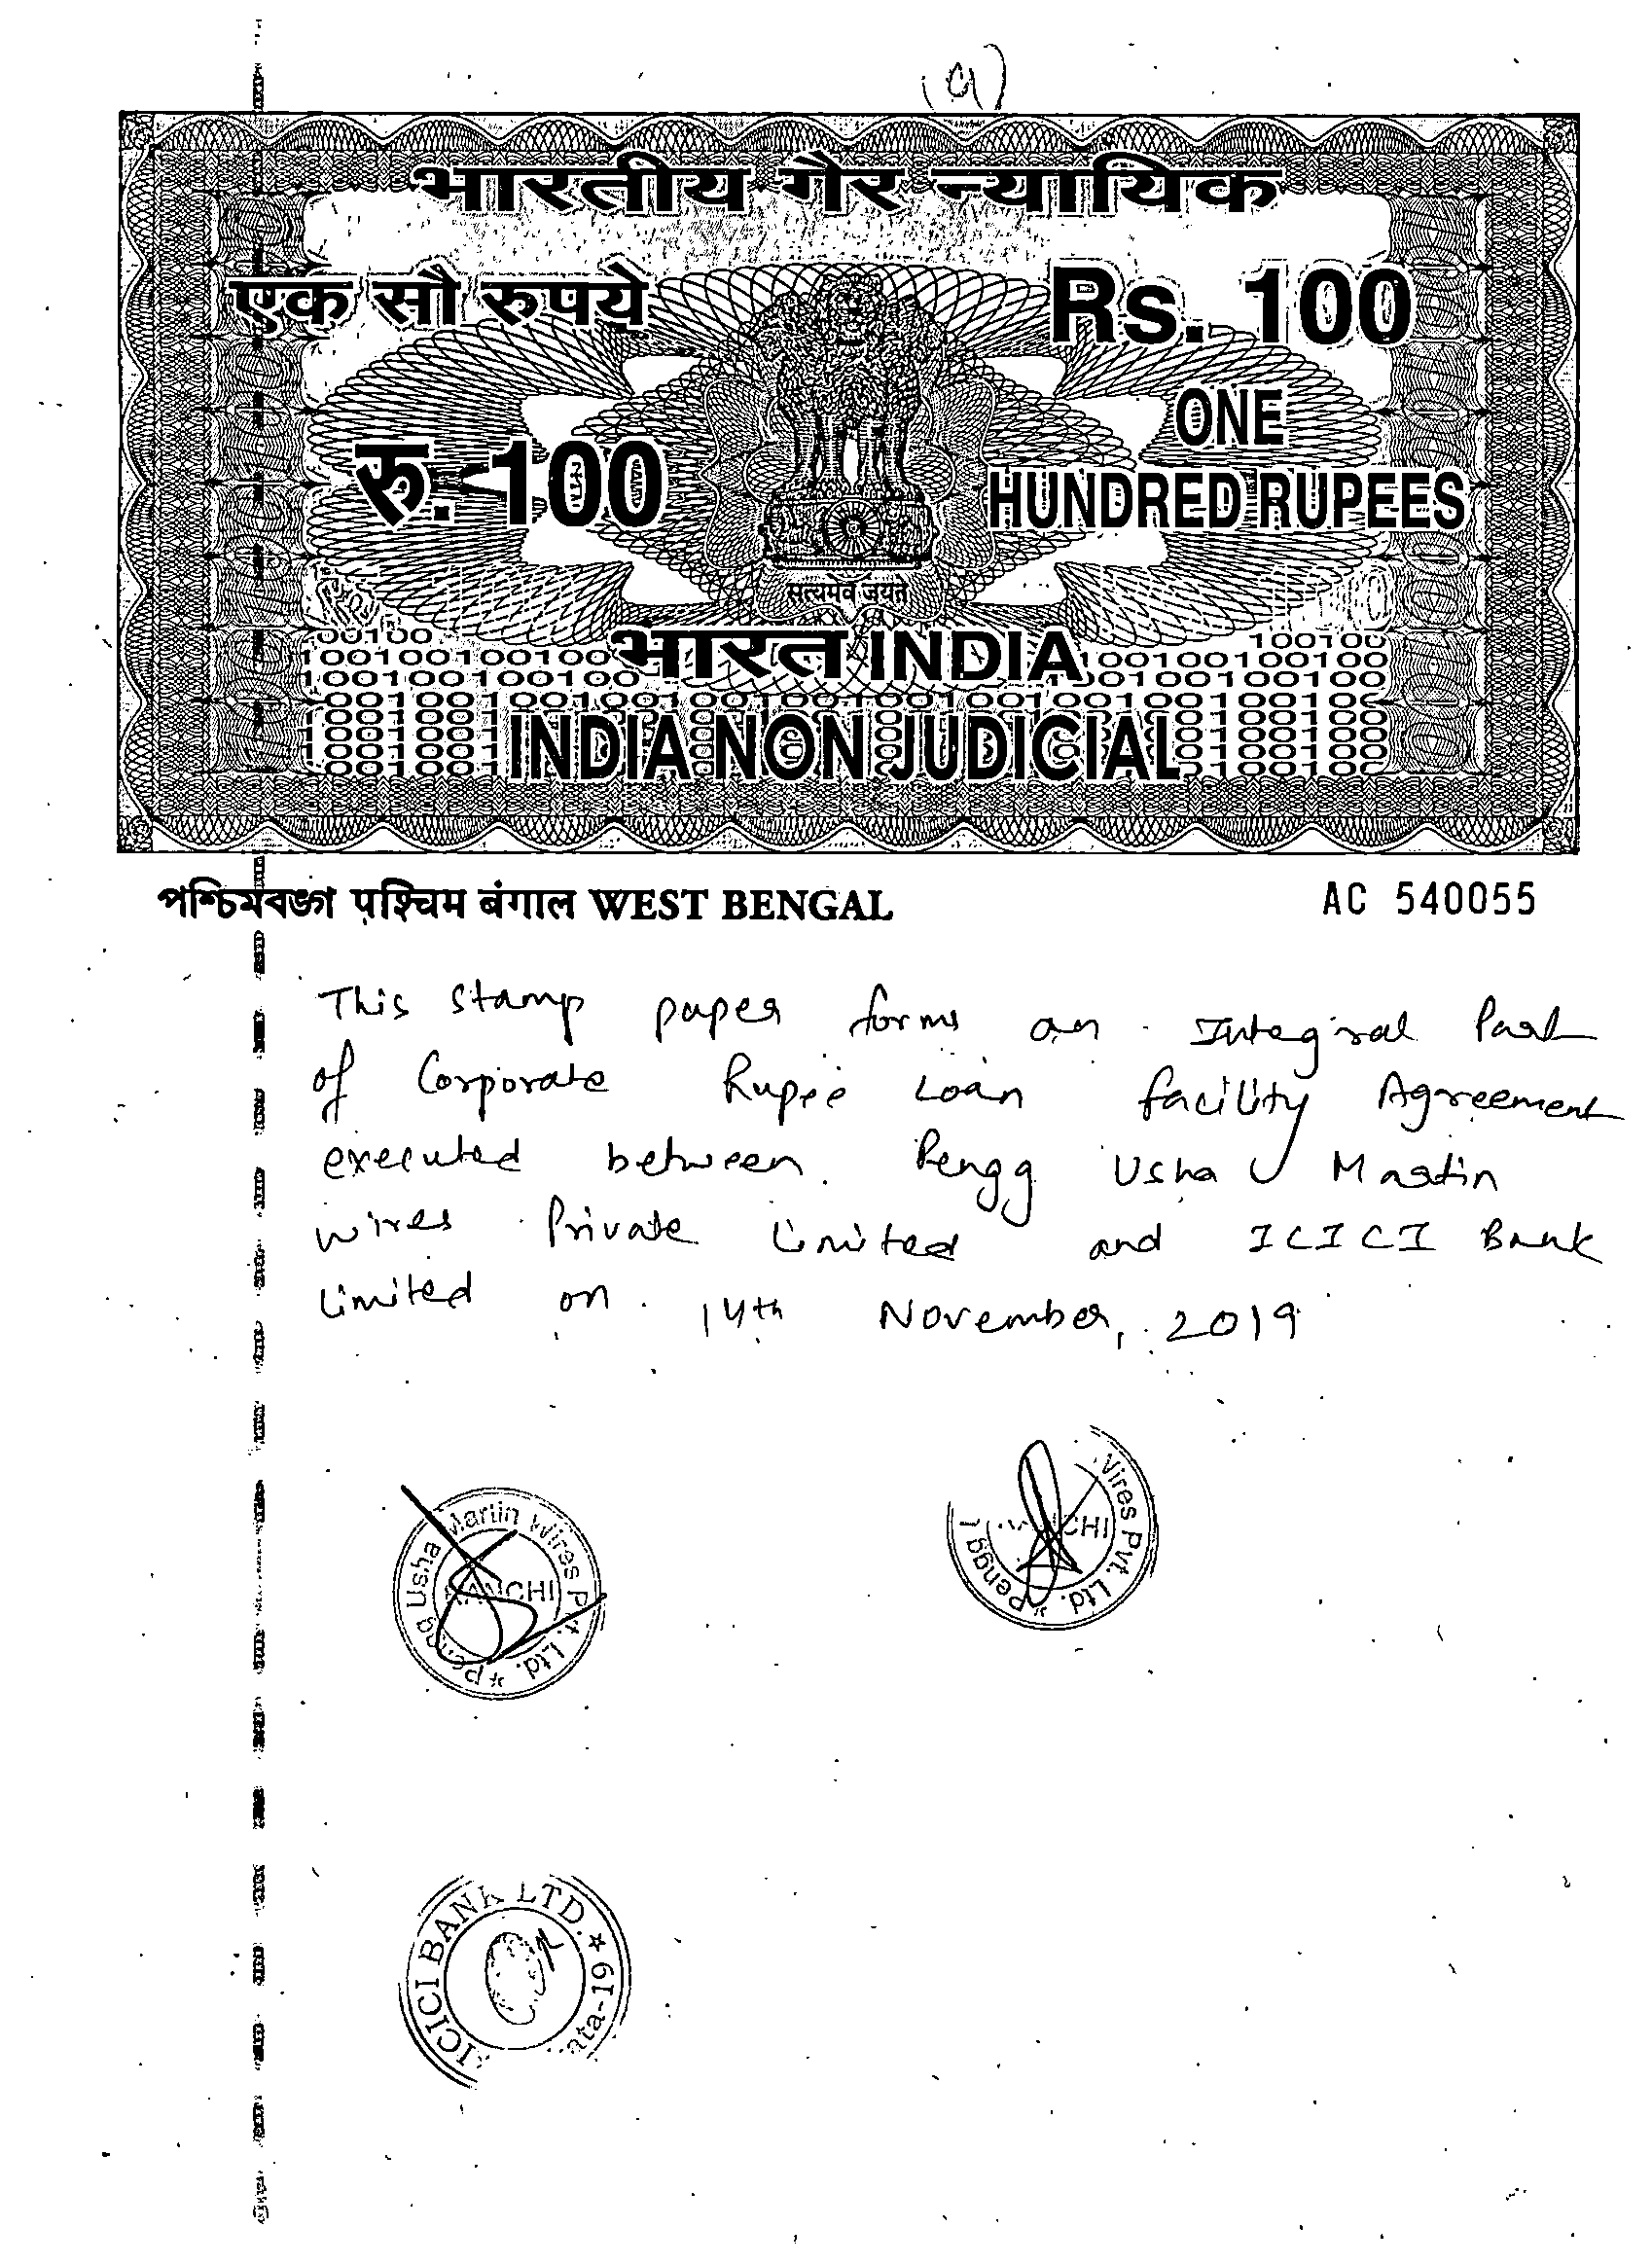 (9)
भारतीय गैर न्यायिक
एक सौ रुपये
Rs. 100
रु. 100
ONE
HUNDRED RUPEES
सत्यमेव जयते
भारत INDIA
INDIA NON JUDICIAL
পশ্চিমবঙ্গ पश्चिम बंगाल WEST BENGAL
AC 540055
This stamp paper forms an Integral Part
of Corporate Rupee Loan facility Agreement
executed between Pengg Usha Martin
wires Private Limited and ICICI Bank
Limited on 14th November, 2019
Pengg Usha Martin Wires Pvt. Ltd. RANCHI
Pengg Wires Pvt. Ltd.
ICICI BANK LTD.